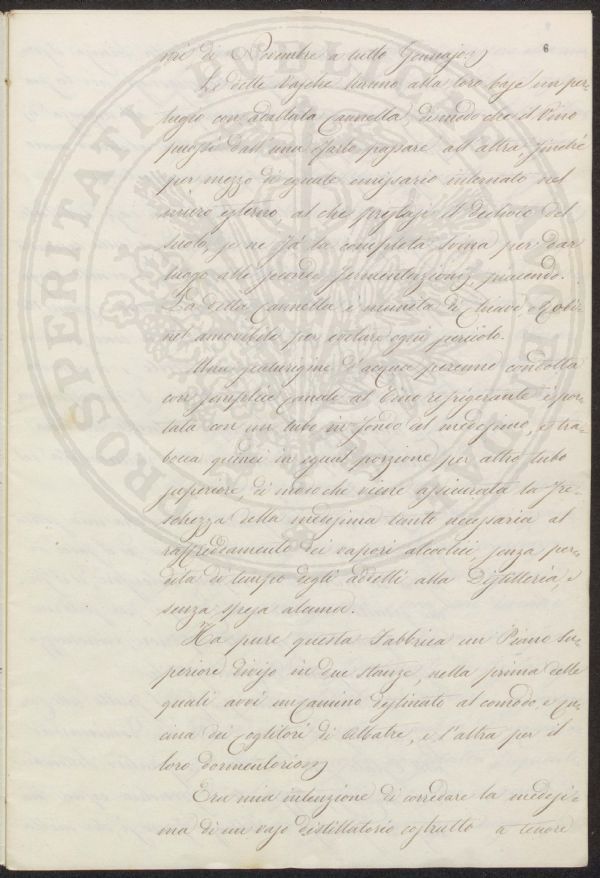 6
mi di Novembre a tutto Gennajo.
Le dette Vasche hanno alla loro base un per-
tugio con adattata Cannella, di modo che il Vino
passi dall'una farlo passare all'altra finchè
per mezzo di eguale emissario internato nel
muro esterno, al che prestasi il declivio del
suolo, se ne fà la completa svina per dar
luogo alle seconde fermentazioni, piacendo.
La detta Cannella è munita di Chiave o Robi-
net amovibile per evitare ogni pericolo.
Una scaturigine d'acqua perenne condotta
con semplice canale al Tino refrigerante è por-
tata con un tubo in fondo al medesimo, e tra-
bocca quindi in egual porzione per altro tubo
superiore, di modo chè viene assicurata la fre-
schezza della medesima tanto necessaria al
raffreddamento dei vapori alcoolici, senza per-
dita di tempo degli addetti alla Distilleria, e
senza spesa alcuna.
Ha pure questa Fabbrica un Piano Su-
periore diviso in due stanze, nella prima delle
quali avvi un Camino destinato al comodo, e cu-
cina dei Coglitori di Albatre, e l'altra per il
loro dormentorio.
Era mia intenzione di corredare la medesi-
ma di un vaso distillatorio costrutto a tenore
PROSPERITATI PUBLICAE AUGENDAE